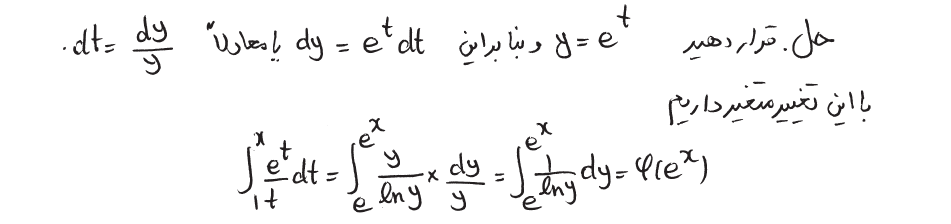 حل. قرار دهید y = e^t و بنابراین dy = e^t dt یا معادلاً dt = dy/y.
با این تغییر متغیر داریم
∫_1^x e^t/t dt = ∫_e^{e^x} y/ln y × dy/y = ∫_e^{e^x} 1/ln y dy = φ(e^x)